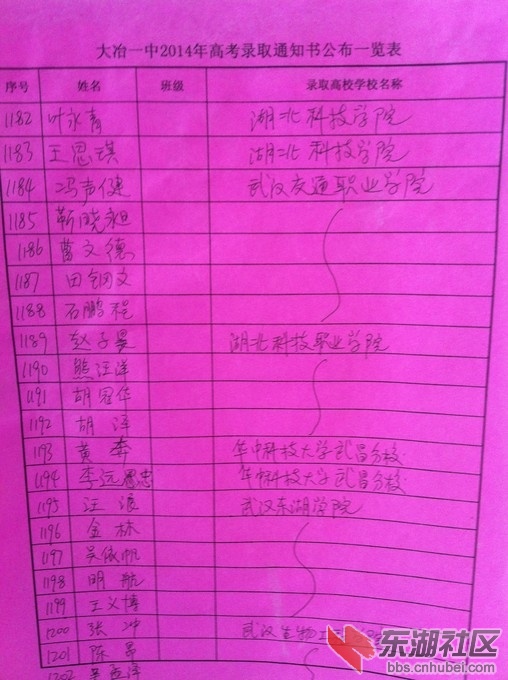 大冶一中2014年高考录取通知书公布一览表
序号 姓名 班级 录取高校学校名称
1182 叶永青 湖北科技学院
1183 王思琪 湖北科技学院
1184 冯声健 武汉交通职业学院
1185 靳晓旭
1186 曹文德
1187 田钢文
1188 石鹏程
1189 赵子昊 湖北科技职业学院
1190 熊汪洋
1191 胡冠华
1192 胡泽
1193 黄犇 华中科技大学武昌分校
1194 李远 华中科技大学武昌分校
1195 汪浪 武汉东湖学院
1196 金林
1197 吴依帆
1198 明航
1199 王义博
1200 张冲 武汉生物工
1201 陈昂
1202
东湖社区
bbs.cnhubei.com